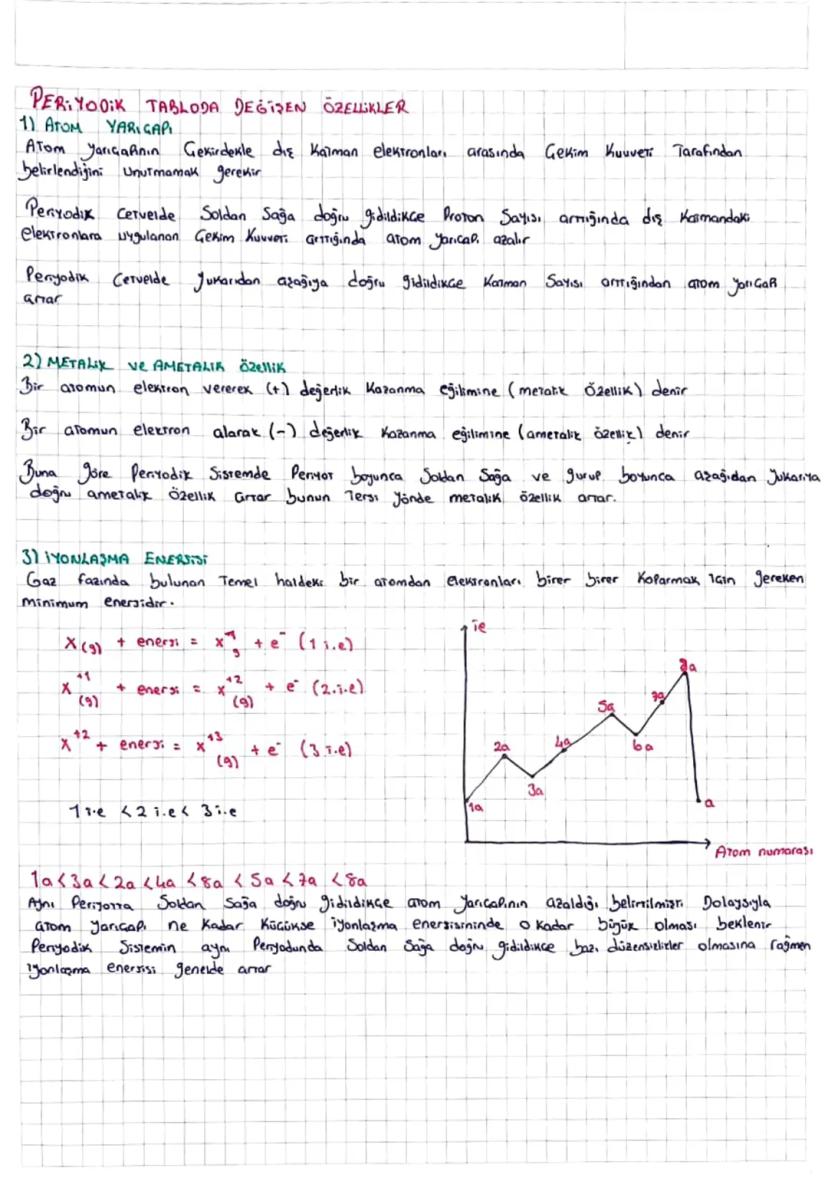 PERİYODİK TABLODA DEĞİŞEN ÖZELLİKLER
1) ATOM YARIÇAPI
Atom yarıçapının Çekirdekle dış Katman elektronları arasında Çekim Kuvveti Tarafından
belirlendiğini Unutmamak gerekir
Periyodik Cetvelde Soldan Sağa doğru gidildikçe Proton Sayısı arttığında dış Katmandaki
elektronlara uygulanan Çekim Kuvveti arttığında atom yarıçapı azalır
Periyodik Cetvelde yukarıdan aşağıya doğru gidildikçe Katman Sayısı arttığından atom yarıçapı
artar
2) METALİK ve AMETALİK Özellik
Bir atomun elektron vererek (+) değerlik Kazanma eğilimine (metalik Özellik) denir
Bir atomun elektron alarak (-) değerlik Kazanma eğilimine (ametalik özellik) denir
Buna göre Periyodik Sistemde Periyot boyunca Soldan Sağa ve gurup boyunca aşağıdan Yukarıya
doğru ametalik Özellik artar bunun Tersi Yönde metalik özellik artar.
3) İYONLAŞMA ENERJİSİ
Gaz fazında bulunan Temel haldeki bir atomdan elektronları birer birer Koparmak için gereken
minimum enerjidir.
X(g) + enerji = X+1 g + e- (1 i.e)
X+1(g) + enerji = X+2(g) + e- (2.i.e)
X+2 + enerji = X+3(g) + e- (3 i.e)
1 i.e < 2 i.e < 3 i.e
ie
1a
2a
3a
4a
5a
6a
7a
8a
a
Atom numarası
1a<3a<2a<4a<8a<5a<7a<8a
Aynı Periyotta Soldan Sağa doğru gidildikçe atom yarıçapının azaldığı belirtilmişti Dolaysıyla
atom yarıçapı ne Kadar Küçükse iyonlaşma enerjisininde o kadar büyük olması beklenir
Periyodik Sistemin aynı Peryodunda Soldan Sağa doğru gidildikçe bazı düzensizlikler olmasına rağmen
iyonlaşma enerjisi genelde artar